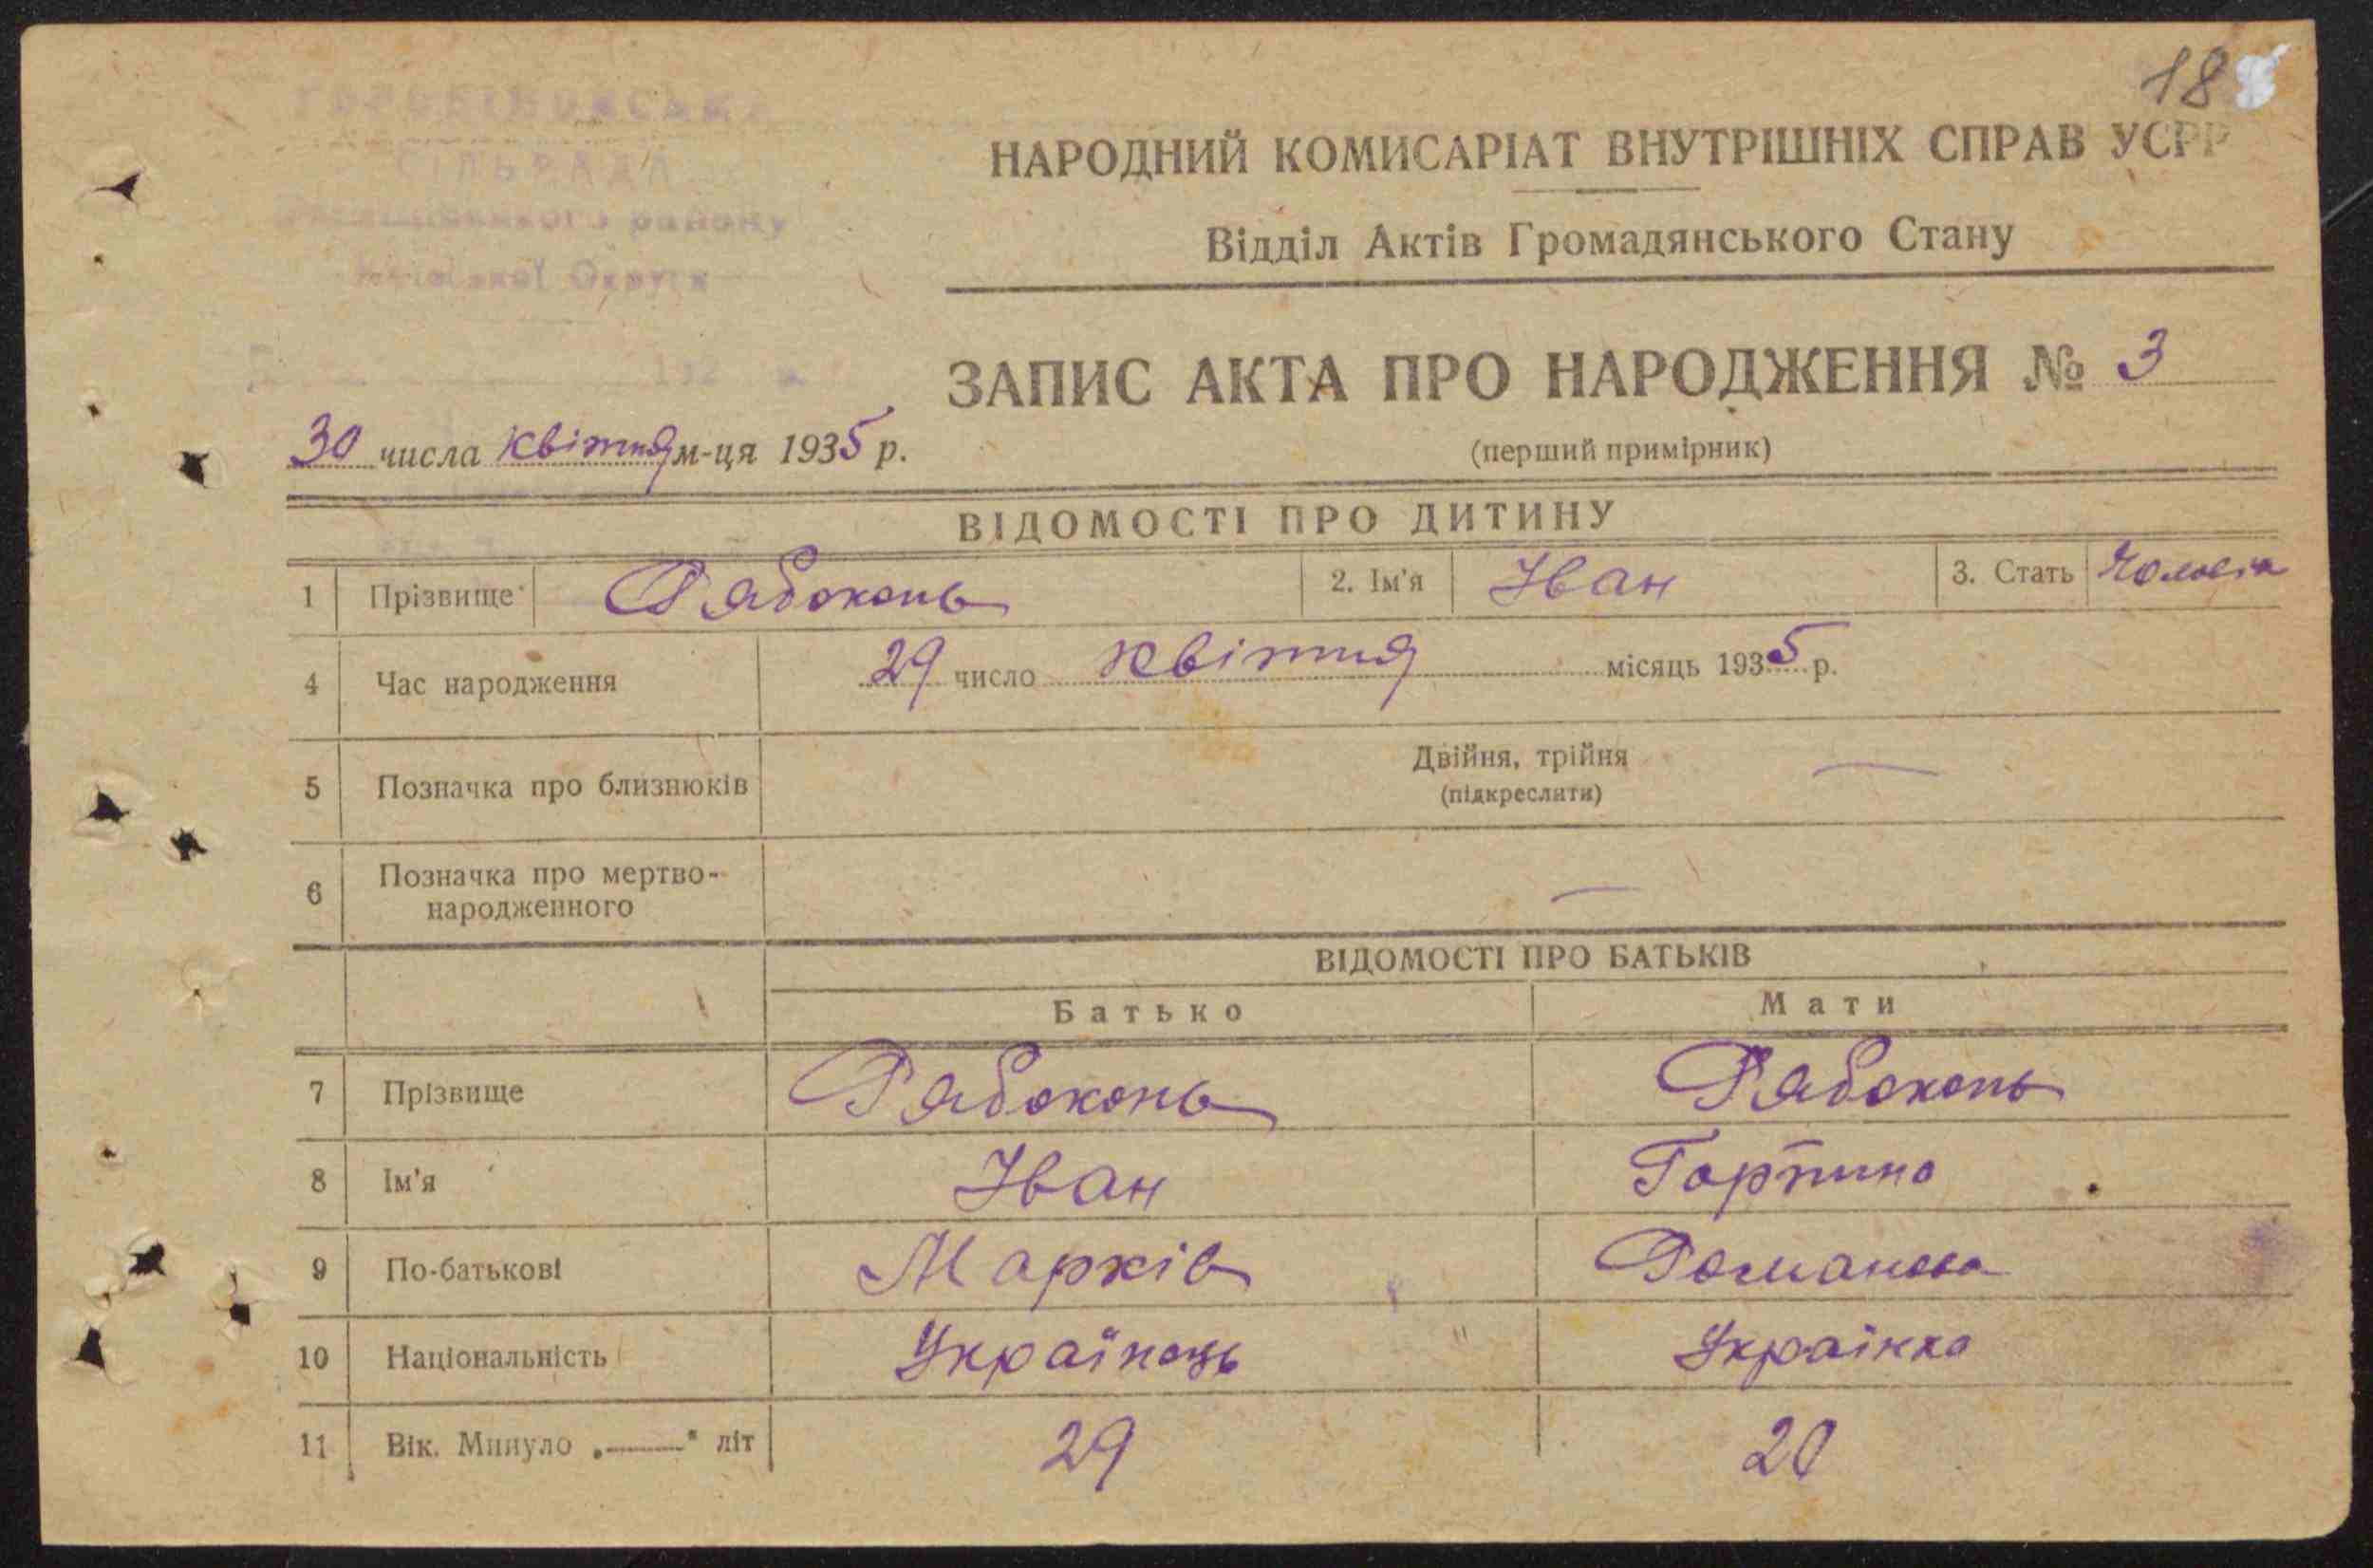 18
СІЛЬРАДА
району
Округи
НАРОДНИЙ КОМИСАРІАТ ВНУТРІШНІХ СПРАВ УСРР
Відділ Актів Громадянського Стану
ЗАПИС АКТА ПРО НАРОДЖЕННЯ № 3
30 числа квітня м-ця 1935 р.
(перший примірник)
ВІДОМОСТІ ПРО ДИТИНУ
1 Прізвище Рябоконь 2. Ім'я Іван 3. Стать
4 Час народження 29 число квітня місяць 1935 р.
Двійня, трійня —
5 Позначка про близнюків
(підкреслити)
6 Позначка про мертво-
народженного —
ВІДОМОСТІ ПРО БАТЬКІВ
Батько Мати
7 Прізвище Рябоконь Рябоконь
8 Ім'я Іван Горпина
9 По-батькові Марків Романова
10 Національність Українець Українка
11 Вік. Минуло „—" літ 29 20